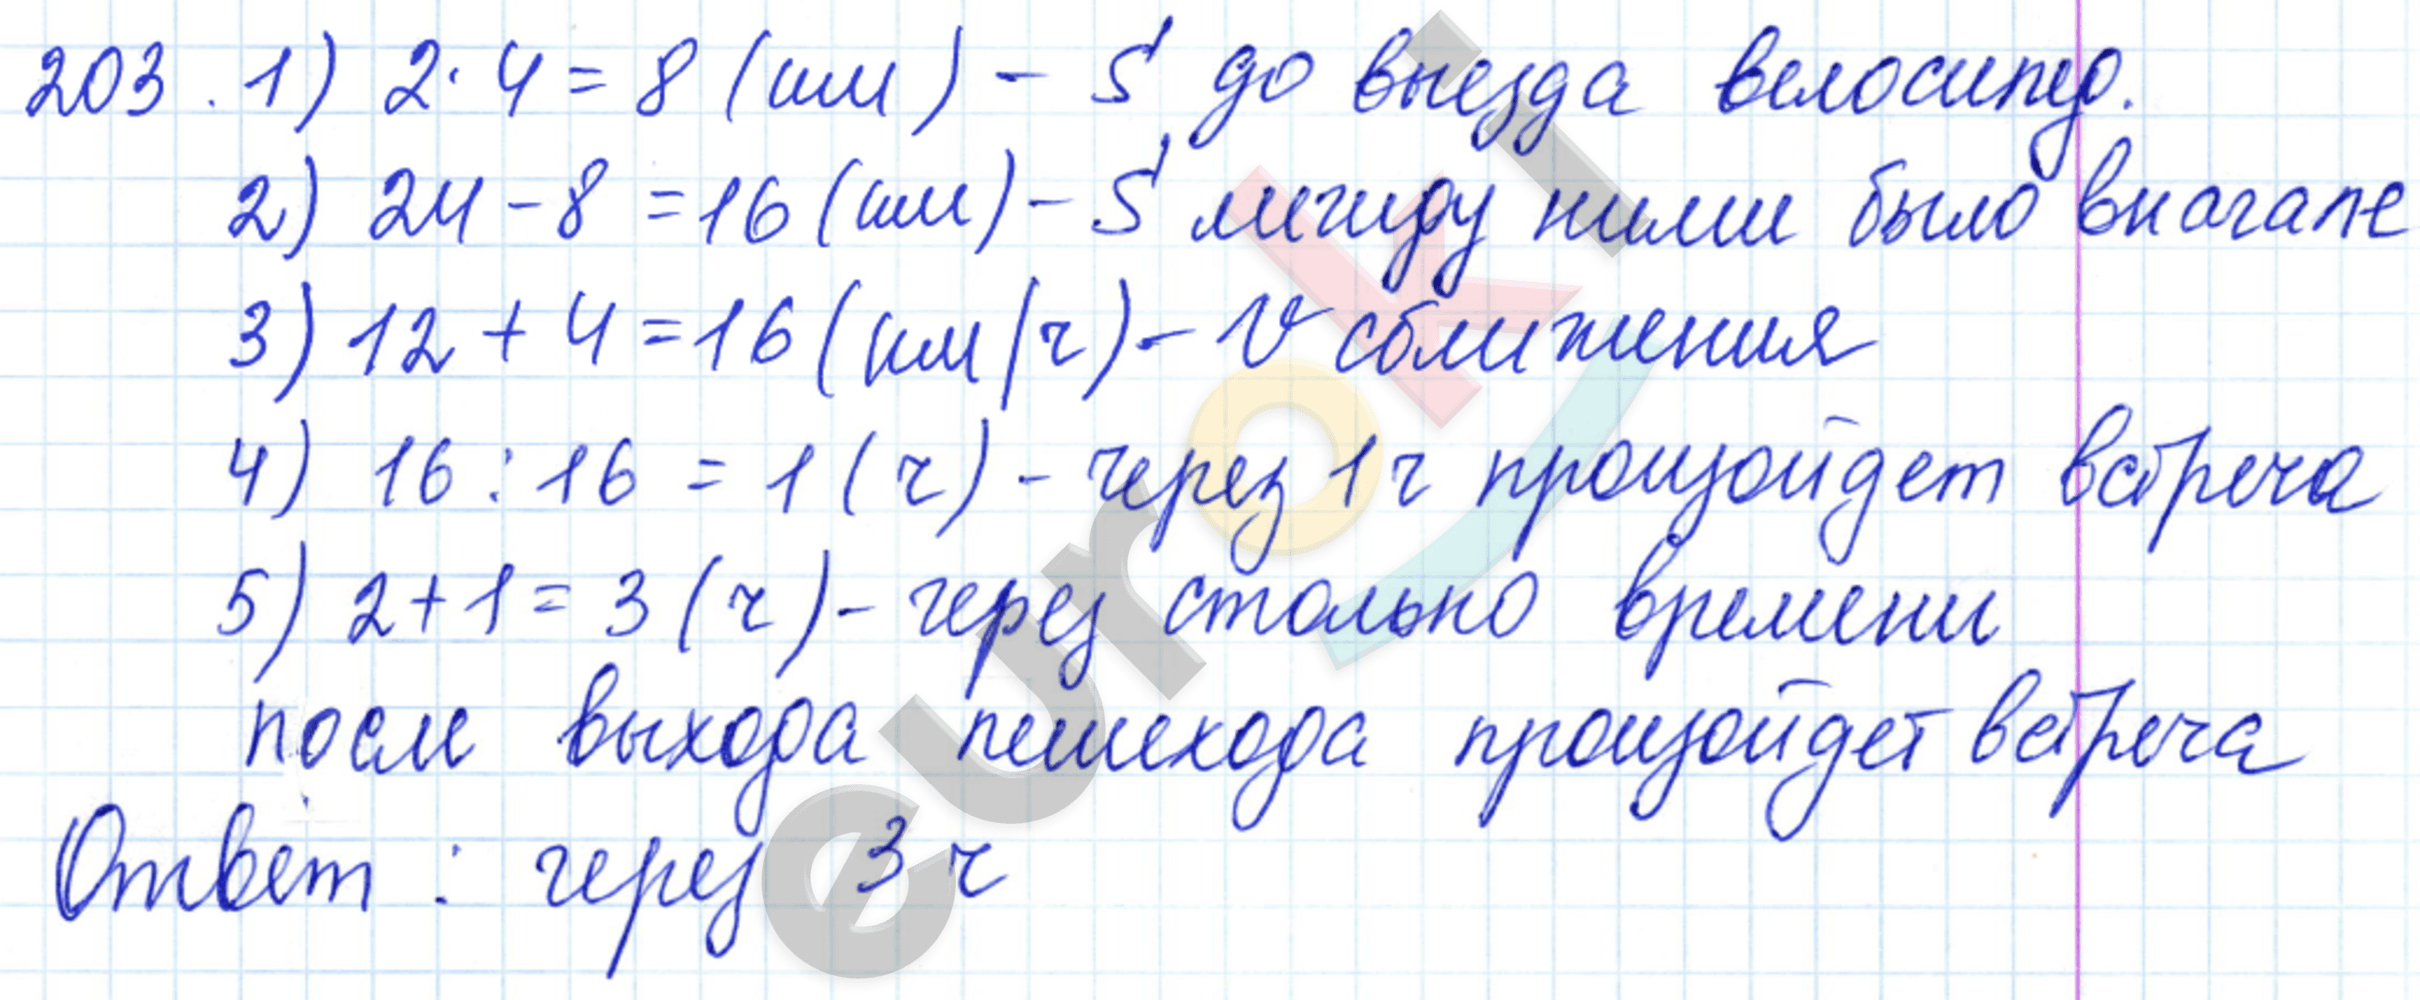 203. 1) 2·4=8 (км) - S до выезда велосипед.
2) 24-8=16 (км) - S между ними было вначале
3) 12+4=16 (км/ч) - V сближения
4) 16:16=1 (ч) - через 1 ч произойдет встреча
5) 2+1=3 (ч) - через столько времени
после выхода пешехода произойдет встреча
Ответ: через 3 ч
euroki